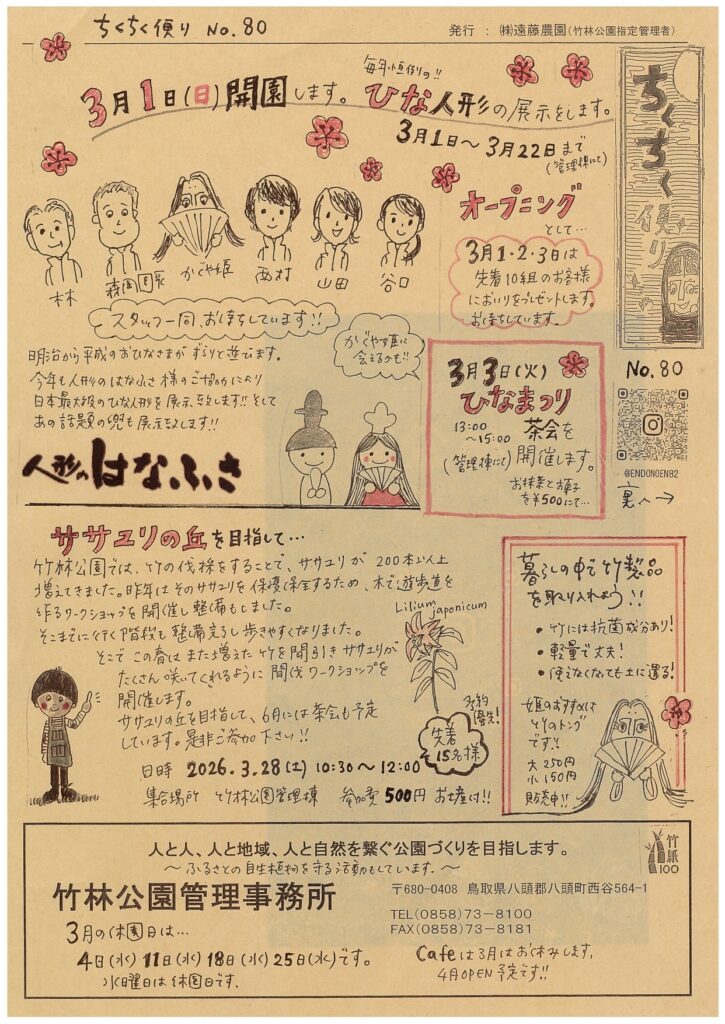 ちくちく便り No.80
発行 : ㈱遠藤農園(竹林公園指定管理者)
3月1日(日)開園します。
毎年恒例の!!
ひな人形の展示をします。
3月1日～3月22日まで
(管理棟にて)
林
森園園長
かぐや姫
西村
山田
谷口
スタッフ一同、お待ちしています!!
オープニング
として…
3月1・2・3日は
先着10組のお客様
においりをプレゼントします。
お待ちしています。
ちくちく便り
No.80
@ENDONOEN82
裏へ→
明治から平成のおひなさまがずらりと並びます。
今年も人形のはなふさ様のご協力により
日本最大級のひな人形を展示致します!!そして
あの話題の兜も展示致します!!
人形のはなふさ
かぐや姫に
会えるかも!!
3月3日(火)
ひなまつり
13:00
～15:00
茶会を
(管理棟にて)開催します。
お抹茶とお菓子
を¥500にて…
ササユリの丘を目指して…
竹林公園では、竹の伐採をすることで、ササユリが200本以上
増えてきました。昨年はそのササユリを保護保全するため、木で遊歩道を
作るワークショップを開催し整備もしました。
そこまでに行く階段も整備完了し歩きやすくなりました。
そこでこの春はまた増えた竹を間引きササユリが
たくさん咲いてくれるように間伐ワークショップを
開催します。
ササユリの丘を目指して、6月には茶会も予定
しています。是非ご参加下さい!!
Lilium
japonicum
予約
優先!
先着
15名様
日時 2026.3.28(土) 10:30～12:00
集合場所 竹林公園管理棟 参加費500円 お土産付!!
暮らしの中で竹製品
を取り入れよう!!
・竹には抗菌成分あり!
・軽量で丈夫!
・使えなくなっても土に還る!
姫のおすすめは
竹のトング
です!!
大250円
小150円
販売中!!
人と人、人と地域、人と自然を繋ぐ公園づくりを目指します。
～ふるさとの自生植物を守る活動もしています.～
竹紙
100
竹林公園管理事務所
〒680-0408 鳥取県八頭郡八頭町西谷564-1
TEL(0858)73-8100
FAX(0858)73-8181
3月の休園日は…
4日(水)11日(水)18日(水)25日(水)です。
水曜日は休園日です.
Cafeは3月はお休みします,
4月OPEN予定です!!